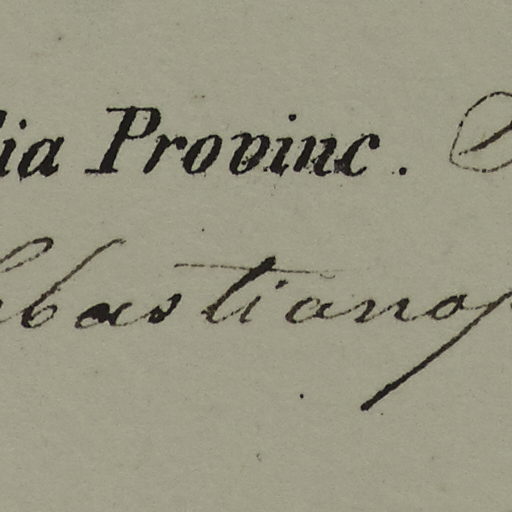 ia Provinc.
bastianop